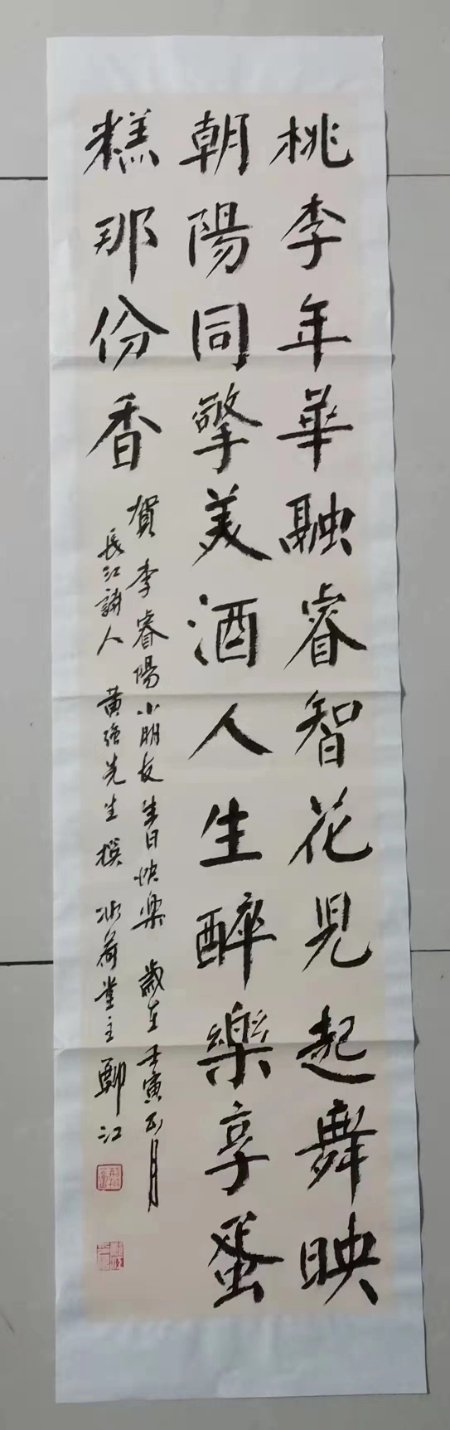 桃李年華融睿智花見起舞映
朝陽同擎美酒人生醉樂享蛋
糕那份香
賀李睿陽小朋友生日快樂 歲在壬寅五月
長江詩人 黃強先生撰 冰荷堂主鄭江